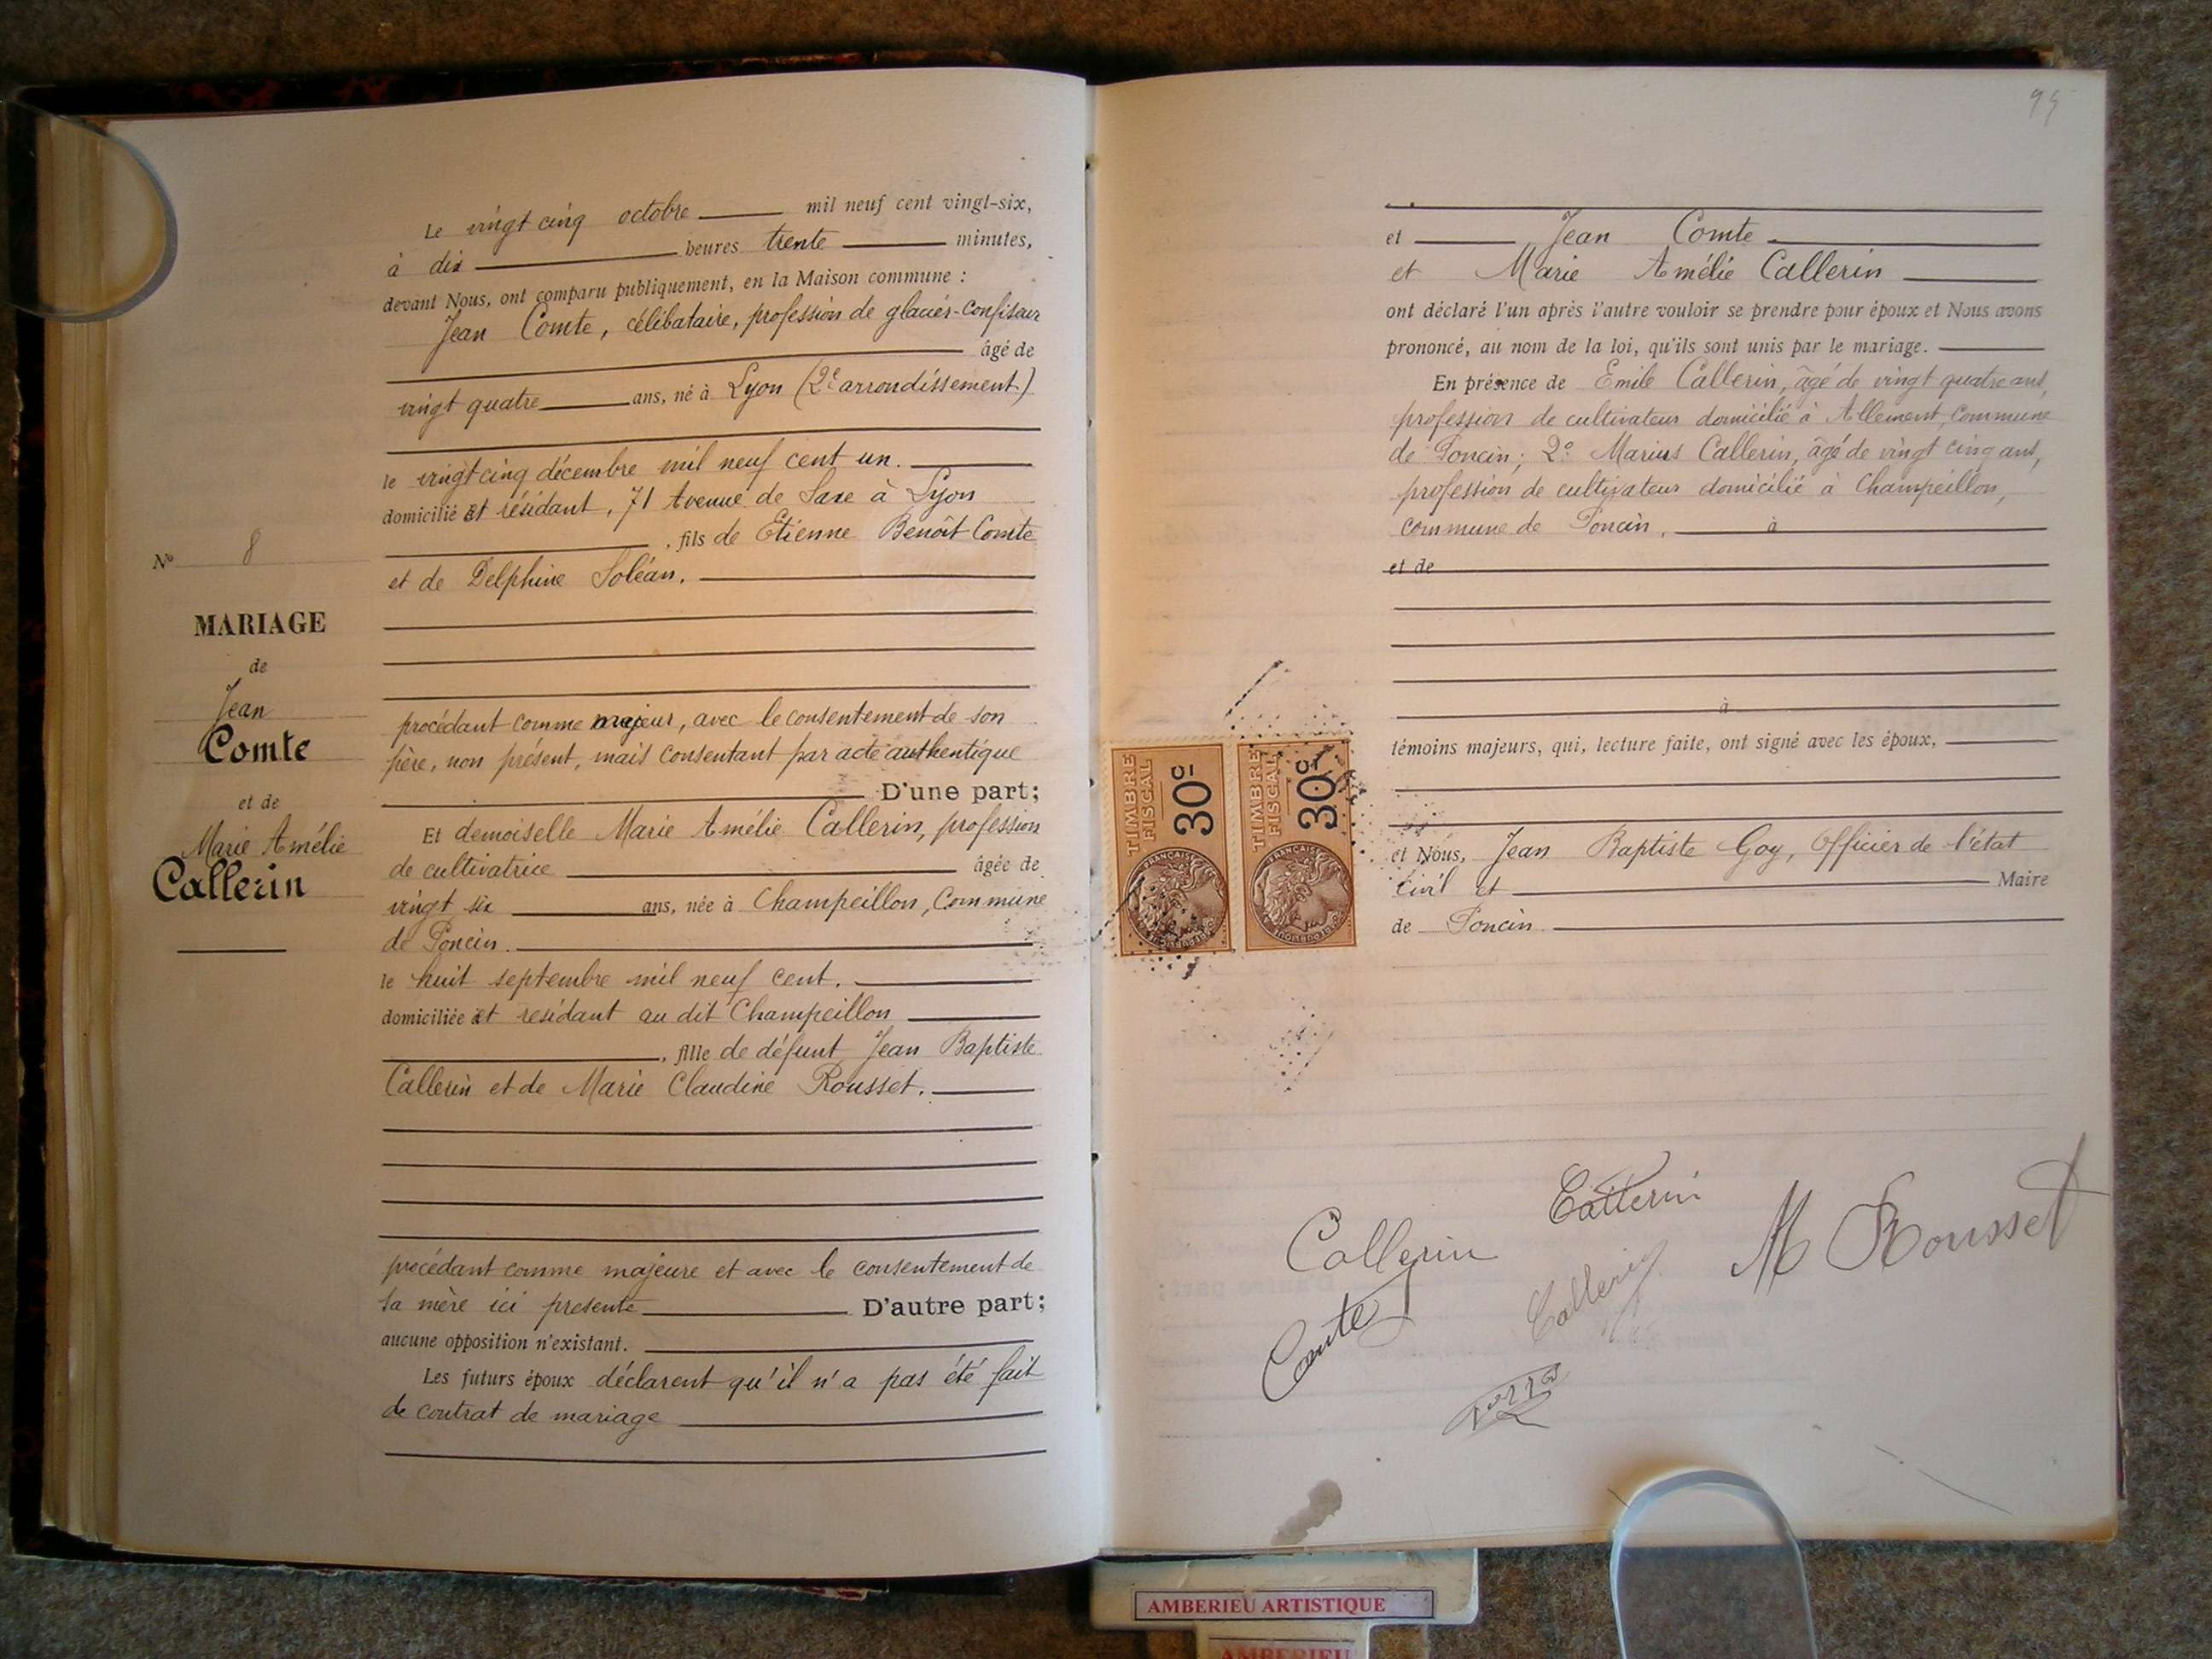 Le vingt cinq octobre mil neuf cent vingt-six,
à dix heures trente minutes,
devant Nous, ont comparu publiquement, en la Maison commune :
Jean Comte, célibataire, profession de glacier-confiseur
âgé de
vingt quatre ans, né à Lyon (2e arrondissement)
le vingt cinq décembre mil neuf cent un.
domicilié et résidant, 71 Avenue de Saxe à Lyon
, fils de Etienne Benoît Comte
et de Delphine Soléan.
No 8
MARIAGE
de
Jean
Comte
et de
Marie Amélie
Callerin
procédant comme majeur, avec le consentement de son
père, non présent, mais consentant par acte authentique
D'une part;
Et demoiselle Marie Amélie Callerin, profession
de cultivatrice âgée de
vingt six ans, née à Champeillon, Commune
de Poncin.
le huit septembre mil neuf cent.
domiciliée et résidant au dit Champeillon
, fille de défunt Jean Baptiste
Callerin et de Marie Claudine Rousset.
procédant comme majeure et avec le consentement de
sa mère ici presente D'autre part;
aucune opposition n'existant.
Les futurs époux déclarent qu'il n'a pas été fait
de contrat de mariage
et Jean Comte
et Marie Amélie Callerin
ont déclaré l'un après l'autre vouloir se prendre pour époux et Nous avons
prononcé, au nom de la loi, qu'ils sont unis par le mariage.
En présence de Emile Callerin, âgé de vingt quatre ans,
profession de cultivateur domicilié à Allement, Commune
de Poncin; 2o Marius Callerin, âgé de vingt cinq ans,
profession de cultivateur domicilié à Champeillon,
commune de Poncin, à
et de
à
témoins majeurs, qui, lecture faite, ont signé avec les époux,
et Nous, Jean Baptiste Goy, Officier de l'état
civil et Maire
de Poncin
TIMBRE FISCAL
30c
TIMBRE FISCAL
30c
Callerin
Callerin
M Rousset
Comte
Callerin
AMBERIEU ARTISTIQUE
AMBERIEU